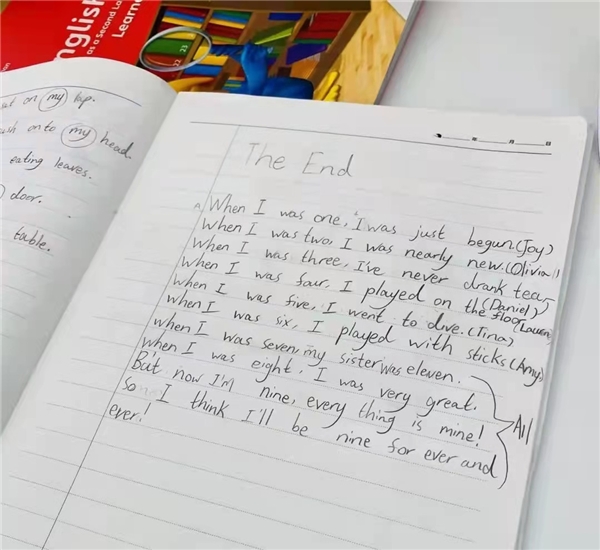 nglish
as a Second La
Learne
22 23
sat on my lap.
ush onto my head.
eating leaves.
door.
table.
年 月 日
The End
When I was one, I was just begun.(Joy)
When I was two, I was nearly new.(Olivia)
When I was three, I've never drank tea.
(Daniel)
When I was four, I played on the floor(Lauren)
When I was five, I went to dive.(Tina)
When I was six, I played with sticks(Amy)
when I was seven, my sister was eleven.
when I was eight, I was very great.
But now I'm nine, every thing is mine!
So I think I'll be nine for ever and
ever!
All